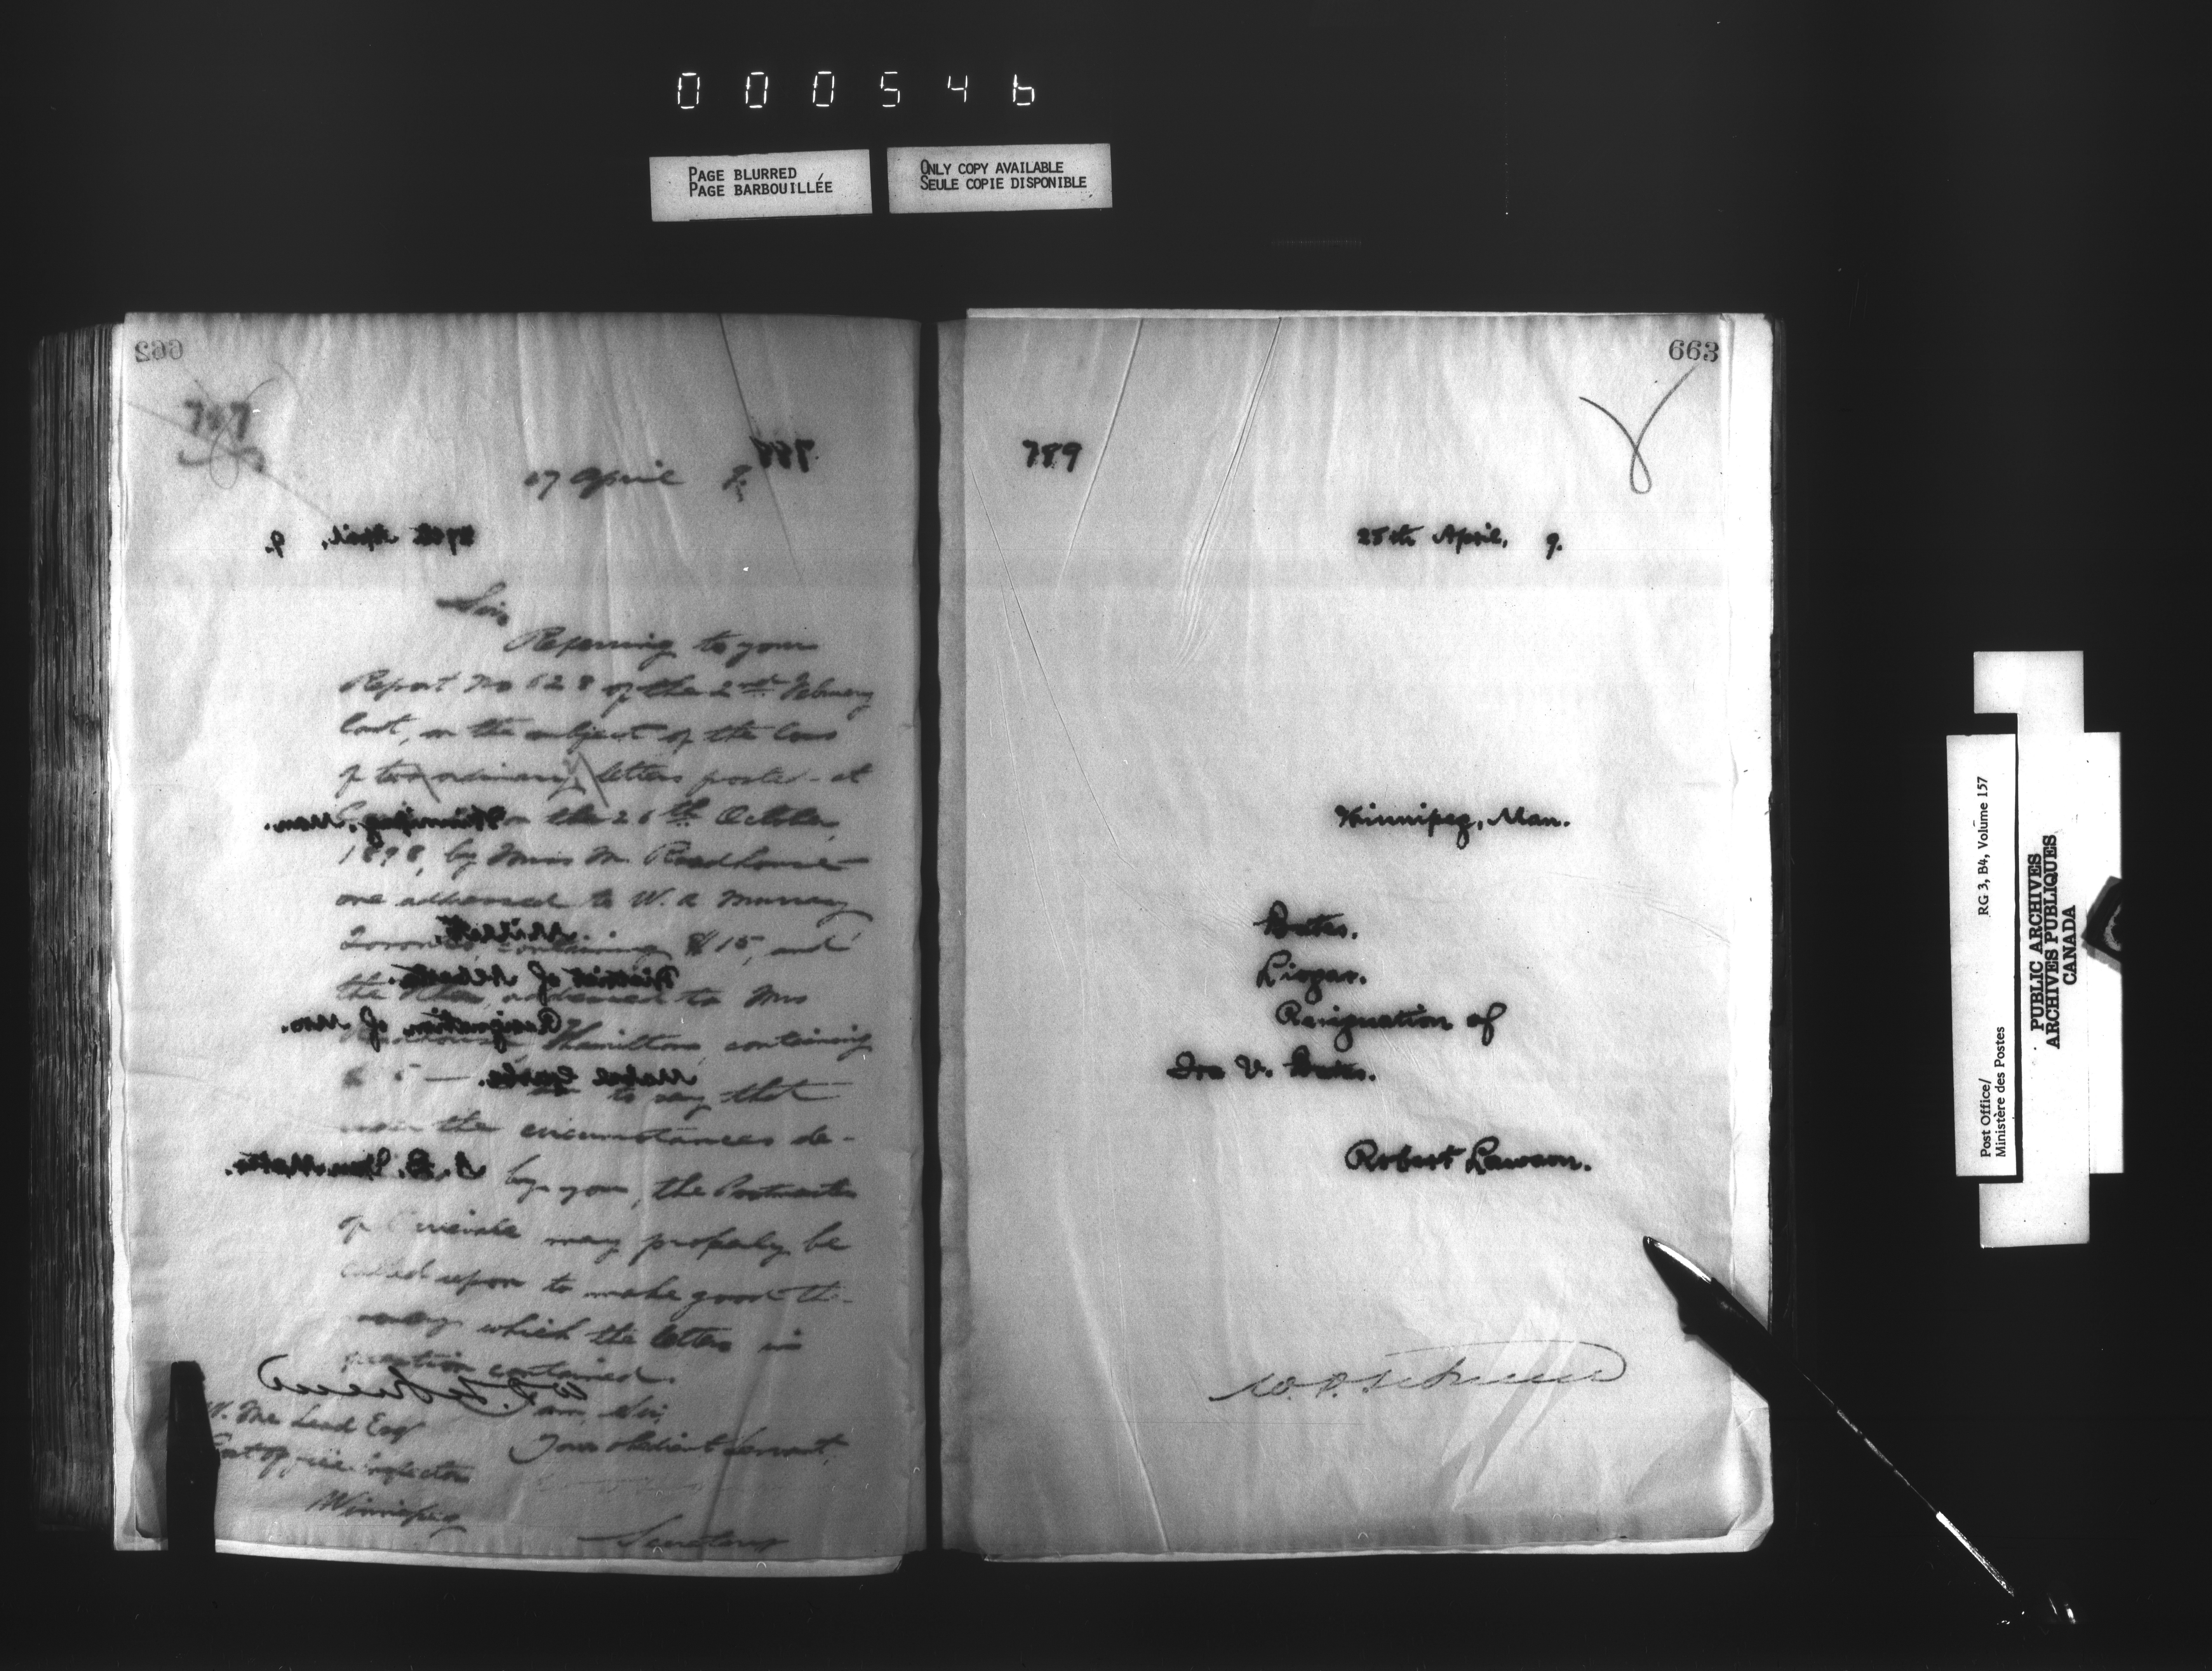 000546
PAGE BLURRED
PAGE BARBOUILLÉE
ONLY COPY AVAILABLE
SEULE COPIE DISPONIBLE
662
787
788
17 April 9.
27th April, 9.
Sir,
Referring to your
Report No 628 of the 2nd February
last, on the subject of the loss
of two ordinary letters posted at
on the 26th October,
Winnipeg, Man.
1898, by Miss M. Roadhouse
one addressed to W. A. Murray
Toronto, containing $15, and
District of Alberta.
the other, addressed to Mrs
Resignation of Mrs.
Hamilton, containing
$5 —
Mabel
to say that
the circumstances de-
by you, the Postmaster
of may properly be
called upon to make good the
money which the letters in
question contained.
W. D. LeSueur
I am, Sir,
W. Mc Leod Esq
Your obedient Servant,
Post office Inspector
Winnipeg
Secretary
663
789
25th April, 9.
Winnipeg, Man.
Bates.
Lisgar.
Resignation of
Ira V. Bates.
Robert Lawson.
W. D. LeSueur
Post Office/
Ministère des Postes
RG 3, B4, Volume 157
PUBLIC ARCHIVES
ARCHIVES PUBLIQUES
CANADA